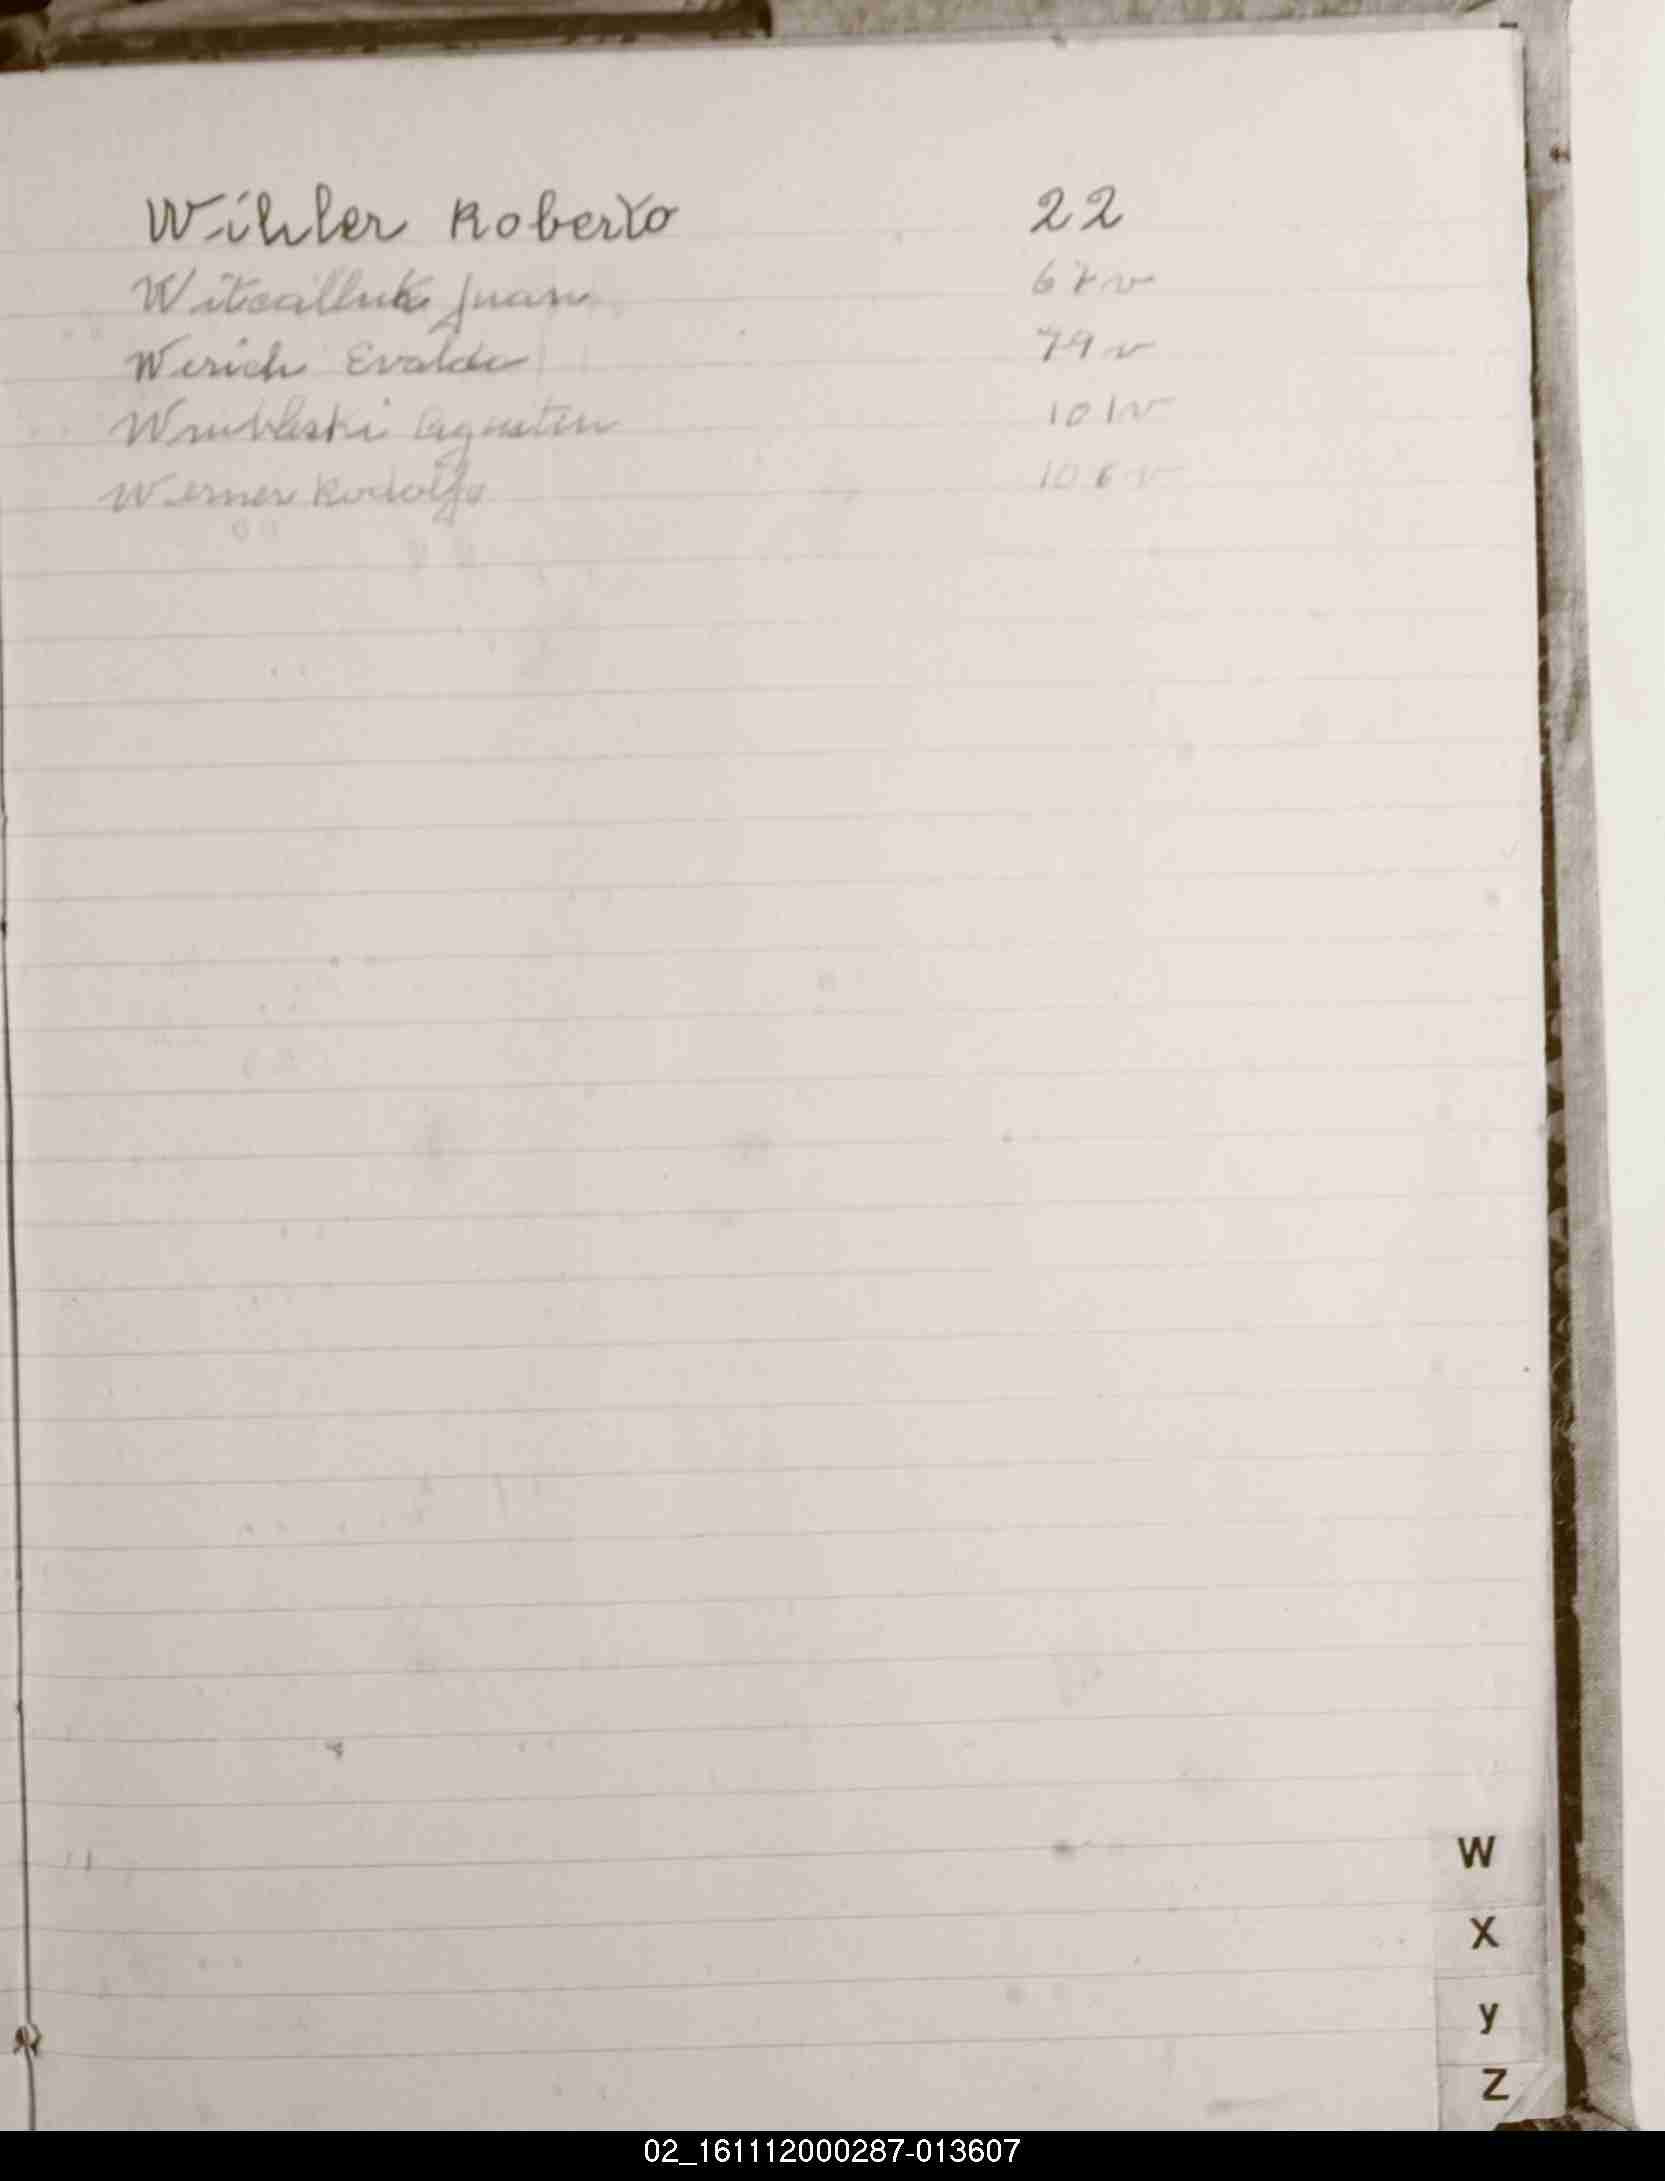 Wihler Roberto 22
Juan 67 v
Werich Evaldo 79 v
Wrubleski Agustin 101 v
Werner Rodolfo 106 v
W
X
y
Z
02_161112000287-013607